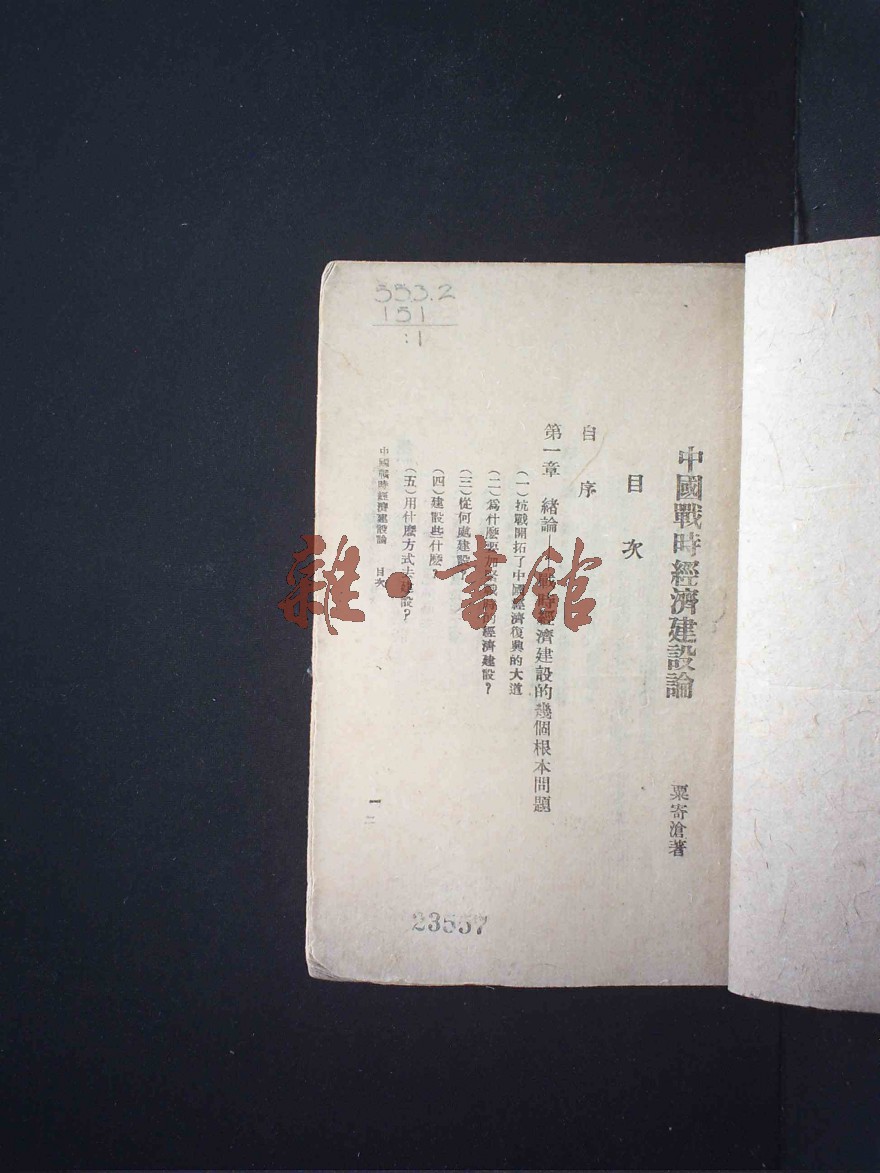 中國戰時經濟建設論
粟寄滄著
目次
自序
第一章 緒論—戰時經濟建設的幾個根本問題
(一)抗戰開拓了中國經濟復興的大道
(二)爲什麼要加緊戰時的經濟建設?
(三)從何處建設?
(四)建設些什麼?
(五)用什麼方式去建設?
中國戰時經濟建設論 目次
一
553.2
151
:1
23557
雜·書館